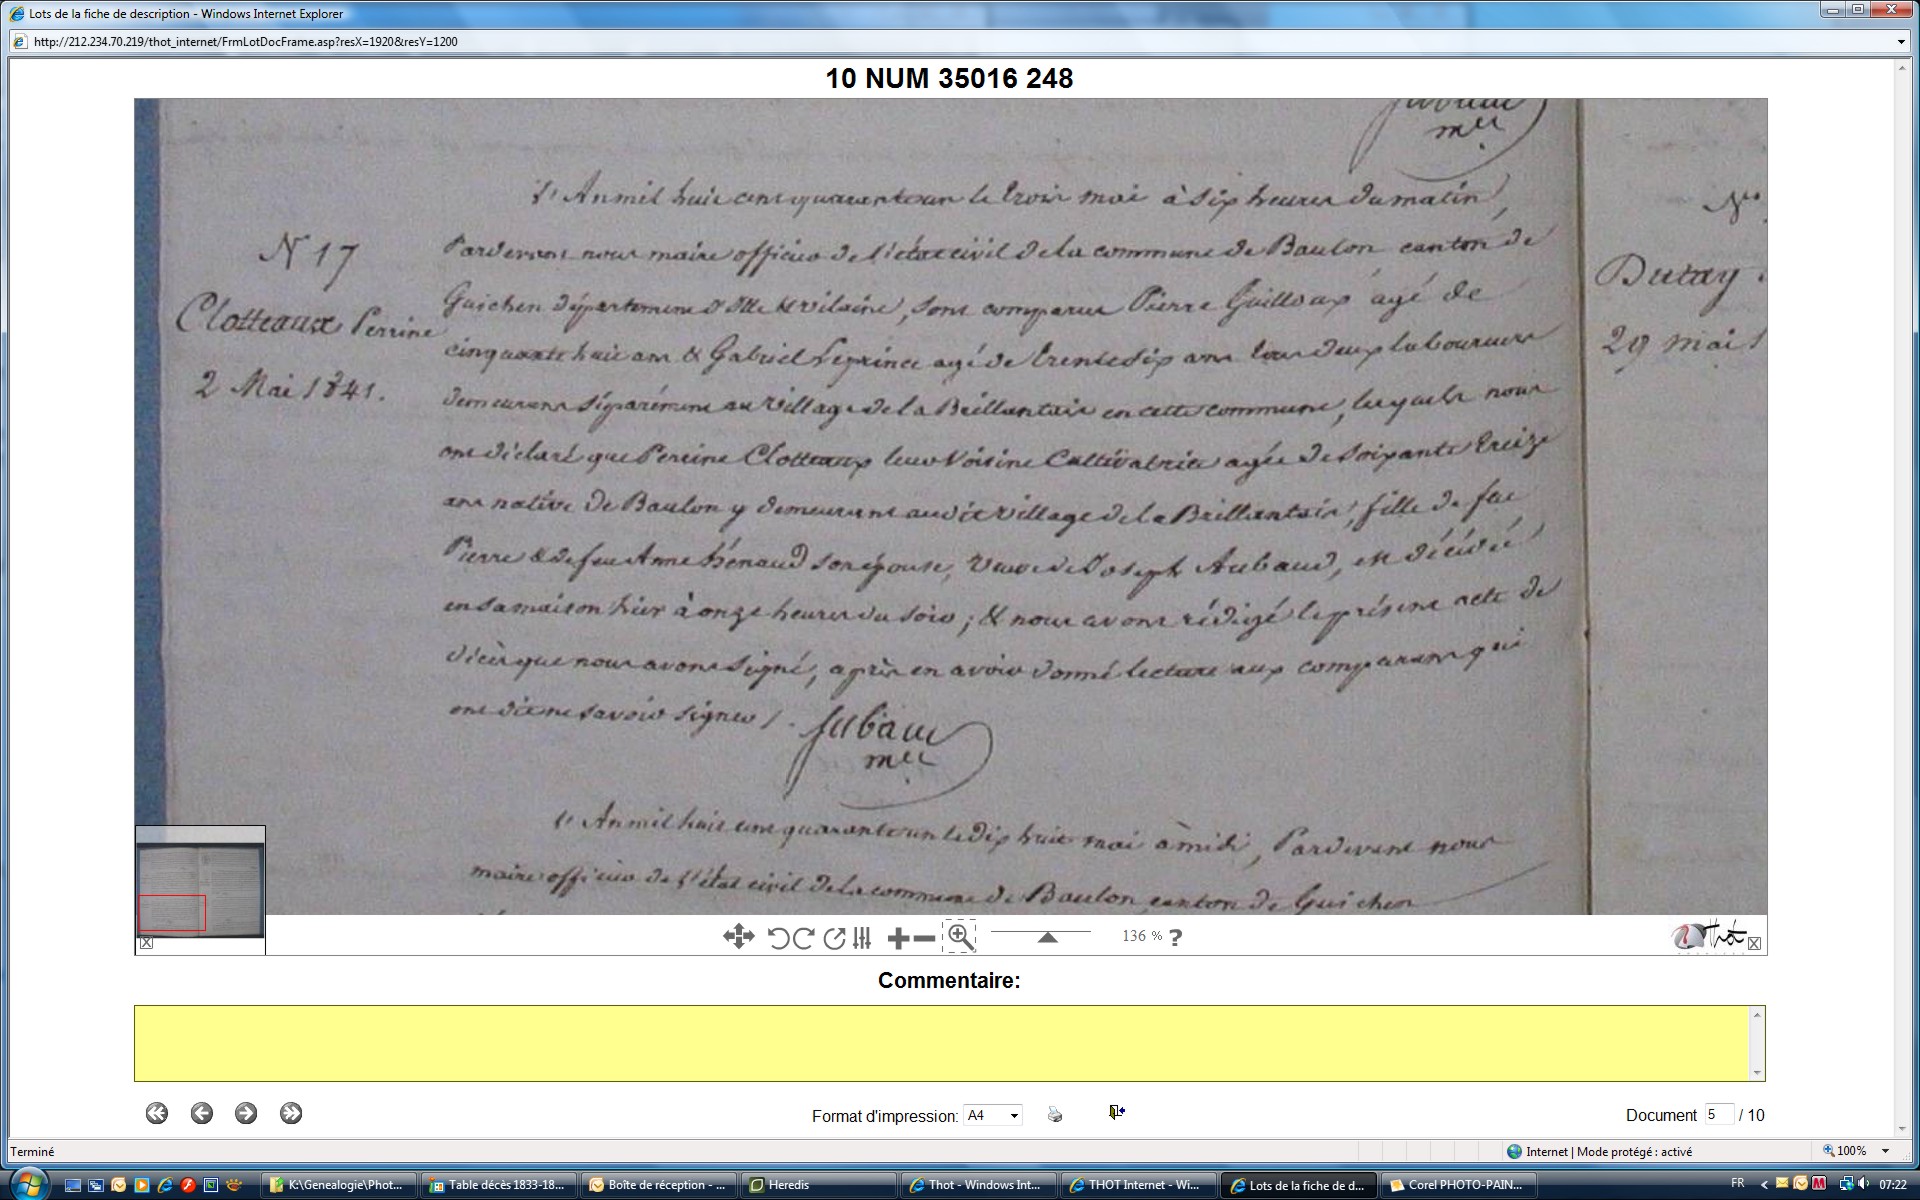 Lots de la fiche de description - Windows Internet Explorer
http://212.234.70.219/thot_internet/FrmLotDocFrame.asp?resX=1920&resY=1200
10 NUM 35016 248
mre
L'An mil huit cent quarante un le trois mai à six heures du matin,
Pardevant nous maire officier de l'état civil de la commune de Baulon canton de
Guichen département d'Ille & vilaine, sont comparus Pierre Guilloux agé de
cinquante huit ans & Gabriel Leprince agé de trente six ans tous deux laboureurs
demeurans séparément au village de la Brillantais en cette commune, lesquels nous
ont déclaré que Perrine Clotteaux leur voisine Cultivatrice agée de soixante treize
ans native de Baulon y demeurant audit village de la Brillantais, fille de feu
Pierre & de feu Anne Hénaud son épouse, veuve de Joseph Aubaud, est décédée
en sa maison hier à onze heures du soir; & nous avons rédigé le présent acte de
décès que nous avons signé, après en avoir donné lecture aux comparans qui
ont dit ne savoir signer /.
mre
N 17
Clotteaux Perrine
2 Mai 1841.
L'An mil huit cent quarante un le dix huit mai à midi, Pardevant nous
maire officier de l'état civil de la commune de Baulon canton de Guichen
No
Dutay
29 mai 1
136 % ?
Thot
Commentaire:
Format d'impression: A4
Document 5 / 10
Terminé
Internet | Mode protégé : activé
100%
K:\Genealogie\Phot...
Table décès 1833-18...
Boîte de réception - ...
Heredis
Thot - Windows Int...
THOT Internet - Wi...
Lots de la fiche de d...
Corel PHOTO-PAIN...
FR
07:22